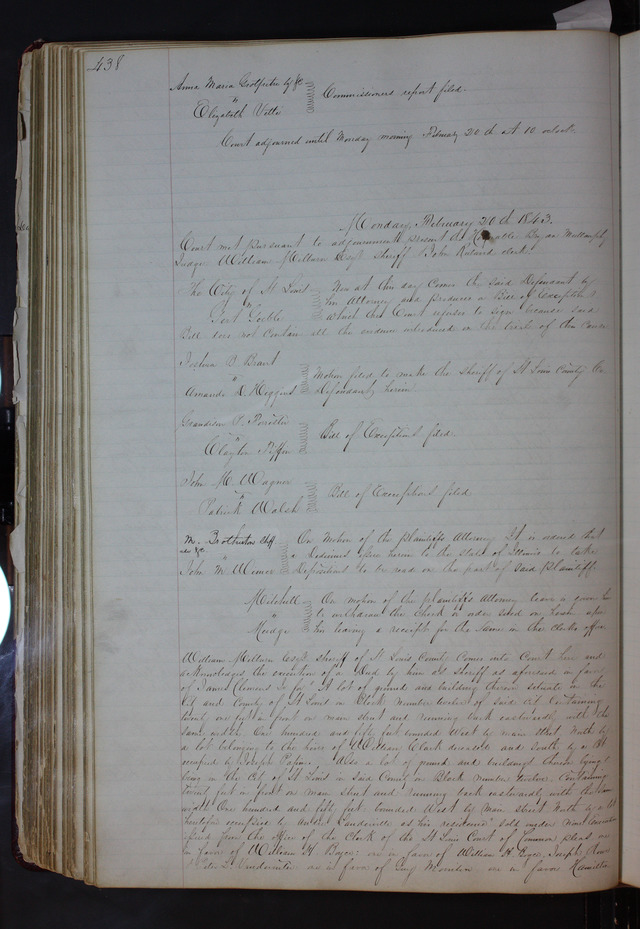 438
Anna Maria by &c
vs Commissioners report filed.
Elizabeth Votte
Court adjourned until Monday morning February 20th at 10 oclock.
Monday, February 20th 1843.
Court met pursuant to adjournment present the Honorable Bryan Mullanphy
Judge William Milburn Esqr Sheriff John Ruland clerk.
The City of St Louis Now at this day Comes the said Defendant by
vs his Attorney and produces a Bill of Exceptions
which the Court refuses to sign because said
Bill does not Contain all the evidence introduced on the trial of this Cause
Joshua B Brant
vs Motion filed to make the Sheriff of St Louis County Co
Amanda R. Higgins Defendants herein.
Grandison
vs Bill of Exceptions filed.
Clayton Tiffin
John H. Wagner
vs Bill of Exceptions filed
Patrick Walsh
On Motion of the plaintiffs Attorney It is ordered that
a Dedimus issue herein to the State of Illinois to take
John M Wimer Depositions to be read on the part of said Plaintiff.
Mitchell On motion of the plaintiffs Attorney leave is given
vs to withdraw the Check or order sued on herein upon
Mudge his leaving a receipt for the same in the clerks office.
William Milburn Esqr Sheriff of St Louis County Comes into Court here and
acknowledges the execution of a Deed by him as Sheriff as aforesaid in favor
of James Clemens Jr for "A lot of ground and building thereon situate in the
City and County of St Louis in Block Number twelve of said City Containing
twenty one feet in front on main street and running back eastwardly with the
same width One hundred and fifty feet bounded West by main street North by
a lot belonging to the heirs of William Clark deceased and South by a lot
occupied by Joseph Also a lot of ground and buildings thereon lying &
being in the City of St Louis in said County in Block number twelve Containing
twenty feet in front on main street and running back eastwardly with the same
width One hundred and fifty feet bounded West by main street North by a lot
heretofore occupied by Landreville as his residence" sold under
issued from the office of the Clerk of the St Louis Court of Common pleas one
in favor of William H. one in favor of William H. Joseph
& Peter one in favor of one in favor Hamilton